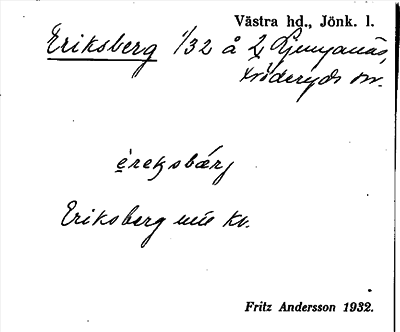 Västra hd., Jönk. l.
Eriksberg 1/32 å 2 Ljunganäs,
Bröderyds sn.
ereksbärj
Eriksberg mu kv.
Fritz Andersson 1932.